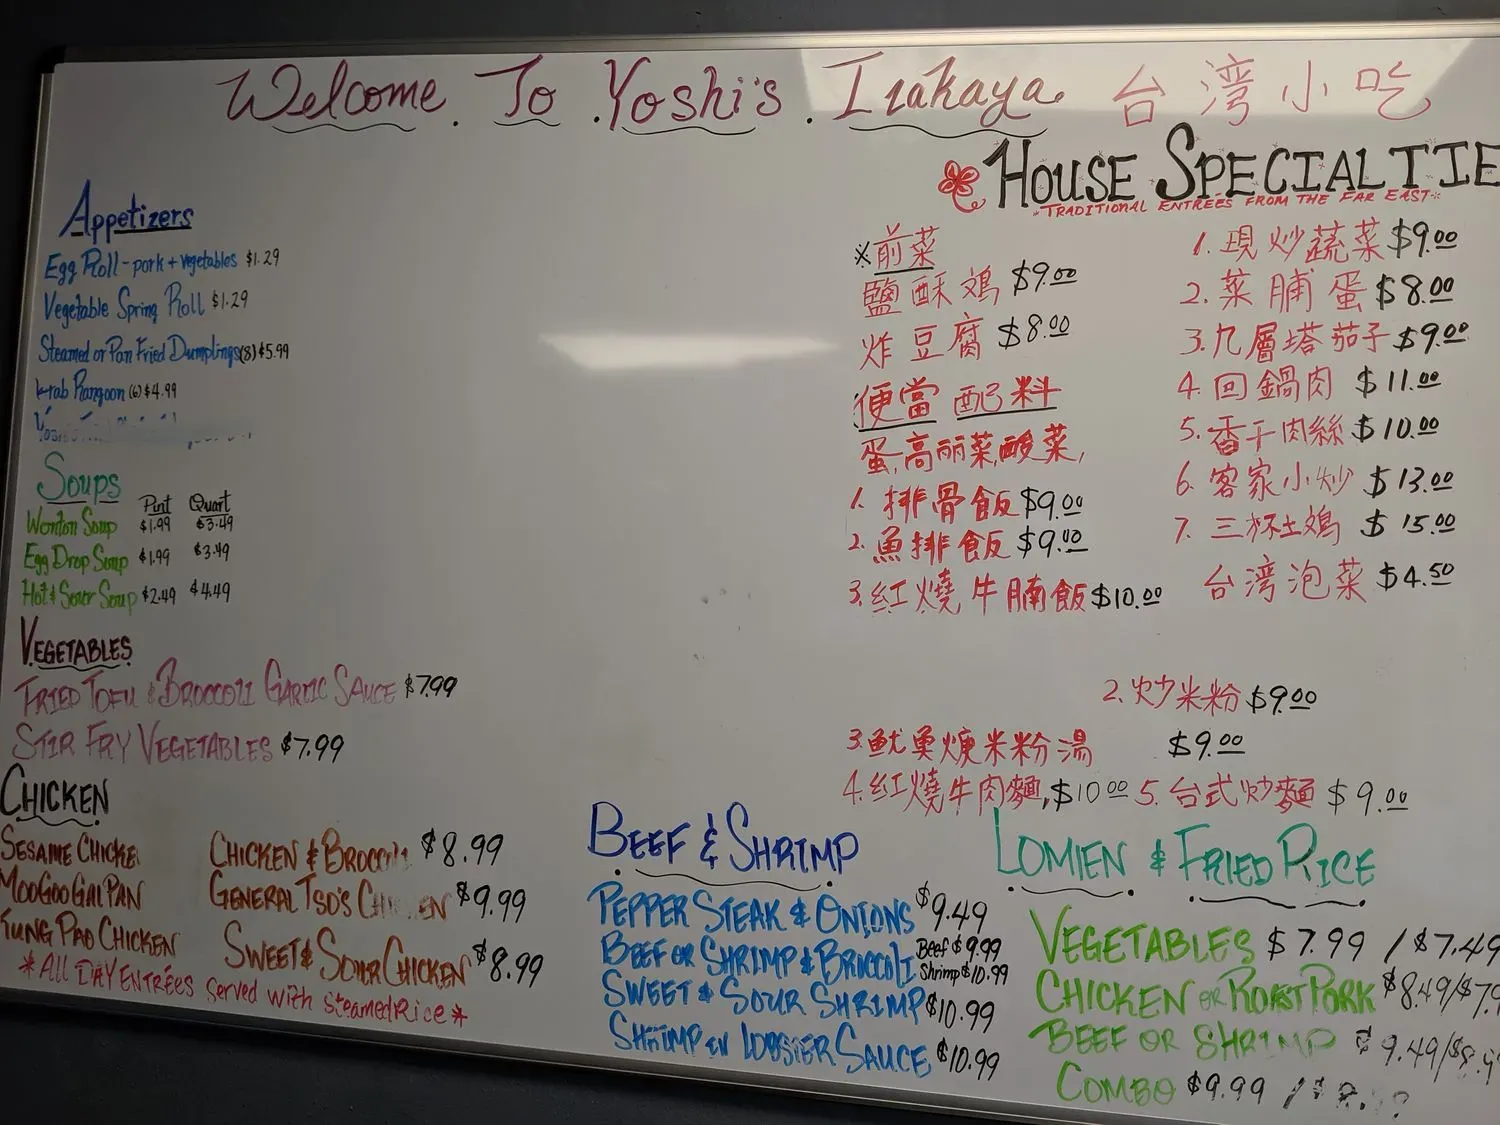 Welcome To Yoshi's Izakaya 台湾小吃
Appetizers
Egg Roll - pork + vegetables $1.29
Vegetable Spring Roll $1.29
Steamed or Pan Fried Dumplings (8) $5.99
Krab Rangoon (6) $4.99
Soups
Pint Quart
Wonton Soup $1.99 $3.49
Egg Drop Soup $1.99 $3.49
Hot & Sour Soup $2.49 $4.49
VEGETABLES
FRIED TOFU & BROCCOLI GARLIC SAUCE $7.99
STIR FRY VEGETABLES $7.99
CHICKEN
SESAME CHICKEN
MOO GOO GAI PAN
KUNG PAO CHICKEN
CHICKEN & BROCCOLI $8.99
GENERAL TSO'S CHICKEN $9.99
SWEET & SOUR CHICKEN $8.99
*ALL DAY ENTRÉES served with steamed Rice*
HOUSE SPECIALTIE
"TRADITIONAL ENTREES FROM THE FAR EAST"
※前菜
鹽酥鴂 $9.00
炸豆腐 $8.00
便當 配料
蛋,高丽菜,酸菜,
1. 排骨飯 $9.00
2. 魚排飯 $9.00
3. 紅燒牛腩飯 $10.00
1. 現炒蔬菜 $9.00
2. 菜脯蛋 $8.00
3. 九層塔茄子 $9.00
4. 回鍋肉 $11.00
5. 香干肉絲 $10.00
6. 客家小炒 $13.00
7. 三杯土鴂 $15.00
台灣泡菜 $4.50
2. 炒米粉 $9.00
3. 魷魚焿米粉湯 $9.00
4. 紅燒牛肉麵, $10.00 5. 台式炒麵 $9.00
BEEF & SHRIMP
PEPPER STEAK & ONIONS $9.49
BEEF OR SHRIMP & BROCCOLI Beef $9.99 Shrimp $10.99
SWEET & SOUR SHRIMP $10.99
SHRIMP IN LOBSTER SAUCE $10.99
LOMIEN & FRIED RICE
VEGETABLES $7.99 / $7.49
CHICKEN OR ROAST PORK $8.49/$7.9
BEEF OR SHRIMP $9.49/$8.9
COMBO $9.99